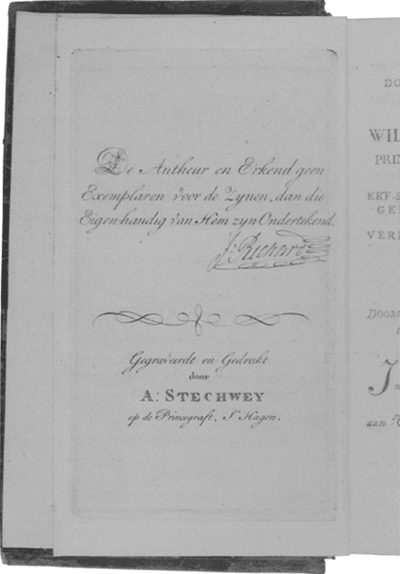 De Autheur en Erkend geen
Exemplaren voor de Zynen, dan die
Eigenhandig van Hem zyn Ondertekend.
J: Richard
Gegraveerdt en Gedrukt
door
A: STECHWEY
op de Princegraft, S' Hagen.
DO
WIL
PRIN
ERF-S
GE
VER
DOOR
J
aan